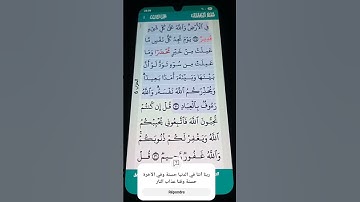 فِي ٱلْأَرْضِ وَٱللَّهُ عَلَىٰ كُلِّ شَيْءٍ
قَدِيرٌ ٢٩ يَوْمَ تَجِدُ كُلُّ نَفْسٍ مَّا
عَمِلَتْ مِنْ خَيْرٍ مُّحْضَرًا وَمَا
عَمِلَتْ مِن سُوٓءٍ تَوَدُّ لَوْ أَنَّ
بَيْنَهَا وَبَيْنَهُۥٓ أَمَدًۢا بَعِيدًا
وَيُحَذِّرُكُمُ ٱللَّهُ نَفْسَهُۥ وَٱللَّهُ
رَءُوفٌۢ بِٱلْعِبَادِ ٣٠ قُلْ إِن كُنتُمْ
تُحِبُّونَ ٱللَّهَ فَٱتَّبِعُونِي يُحْبِبْكُمُ
ٱللَّهُ وَيَغْفِرْ لَكُمْ ذُنُوبَكُمْ
وَٱللَّهُ غَفُورٌ رَّحِيمٌ ٣١ قُلْ
ربنا آتنا في الدنيا حسنة وفي الآخرة
حسنة وقنا عذاب النار
Répondre